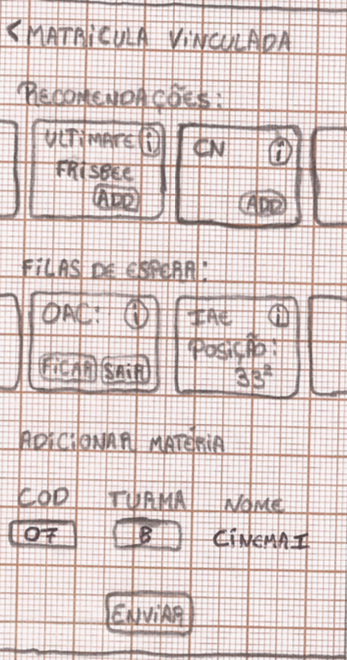 < MATRÍCULA VINCULADA
RECOMENDAÇÕES:
ULTIMATE i
FRISBEE
ADD
CN i
ADD
FILAS DE ESPERA:
OAC: i
FICAR SAIR
IAE i
POSIÇÃO:
33ª
ADICIONAR MATÉRIA
COD TURMA NOME
07 B CINEMA I
ENVIAR